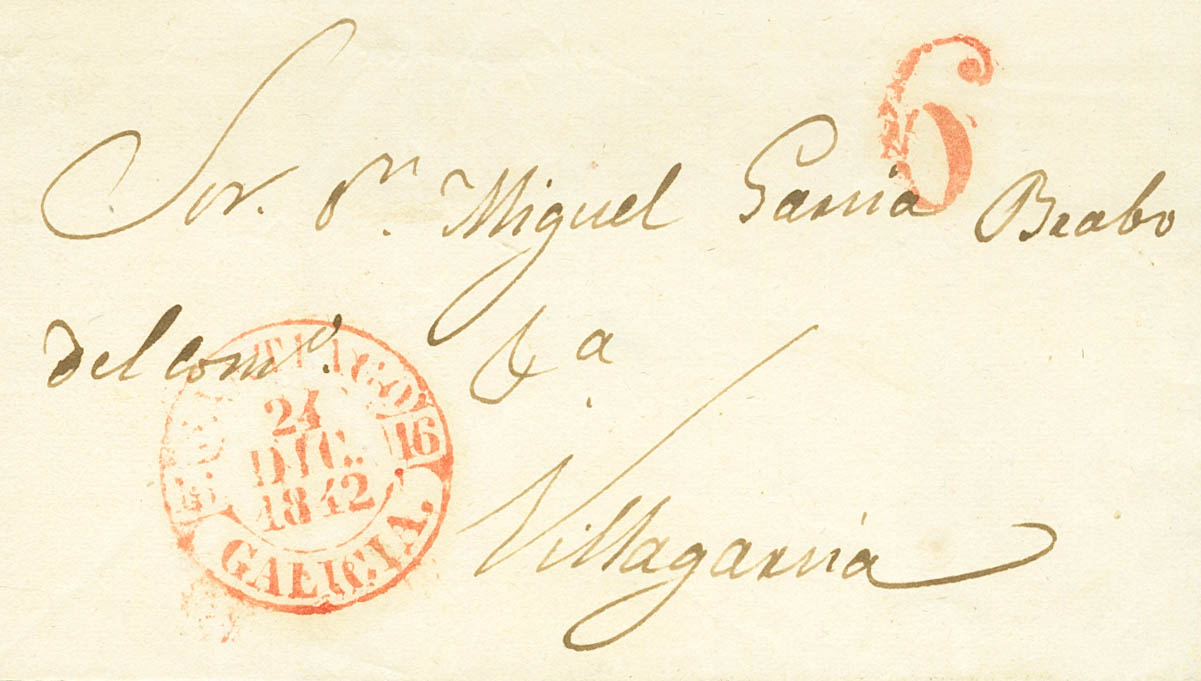 6
Sor. Dn. Miguel Garcia Brabo
del como.
Villagarcia
SANTIAGO
16
24
DIC.
1842
GALICIA.